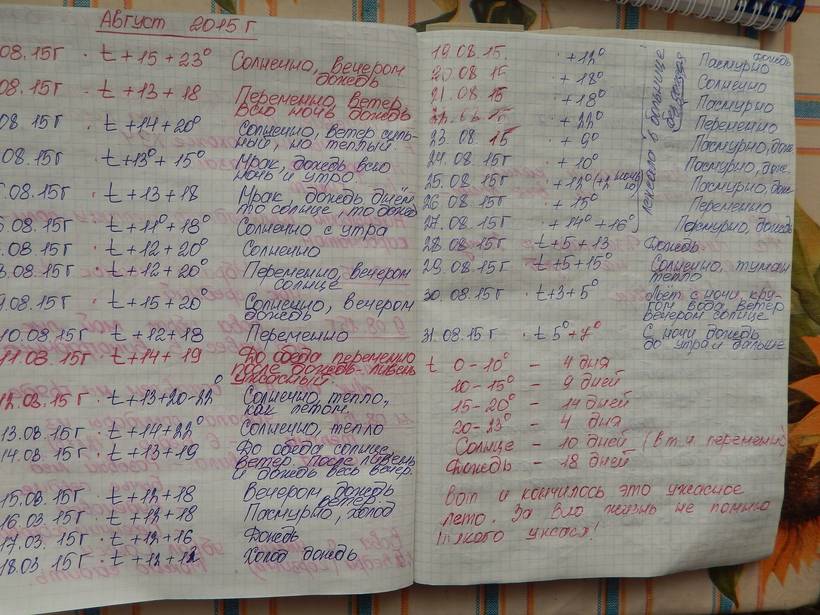 Август 2015 г
08.15г · t +15 +23° Солнечно, вечером
дождь
08.15г · t +13 +18 Переменно, ветер
всю ночь дождь
08.15г · t +14 +20° Солнечно, ветер силь-
ный, но теплый
.08.15г · t +13° +15° Мрак, дождь всю
ночь и утро
.08.15г · t +13 +18 Мрак дождь днём
то солнце, то дождь
.08.15г · t +11° +18° Солнечно с утра
.08.15г · t +12 +20° Солнечно
.08.15г · t +12 +20° Переменно, вечером
солнце
9.08.15г · t +15 +20° Солнечно, вечером
дождь
10.08.15г · t +12 +18 Переменно
11.08.15г t +14 +19 До обеда переменно
после дождь-ливень
ужасный
12.08.15г · t +13 +20-22° Солнечно, тепло,
как летом.
13.08.15г · t +14 +22° Солнечно, тепло
14.08.15г · t +13 +19 До обеда солнце,
ветер. После ливень
и дождь весь вечер.
15.08.15г · t +12 +18 Вечером дождь
ветер
16.08.15г · t +12 +18 Пасмурно, холод
17.08.15г · t +12 +16 Дождь
18.08.15г · t +12 +12 Холод дождь
19.08.15. · +12° Пасмурно дождь
20.08.15 · +18° Солнечно
21.08.15 · +18° Пасмурно
22.08.15 · +22° Переменно
23.08.15 · +9° Пасмурно, дож.
24.08.15г · +10° Пасмурно, дож.
25.08.15г · +12° (+2 ночью) Пасмурно, дож
26.08.15г · +15° Переменно
27.08.15г · +14° +16° Пасмурно, дождь
лежала в больнице
28.08.15г · t +5 +13 Дождь
29.08.15г · t +5 +15° Солнечно, туман
тепло
30.08.15г · t +3 +5° Льёт с ночи, кру-
гом вода ветер
вечером солнце
31.08.15г · t 5° +7° С ночи дождь
до утра и дальше
t 0-10° – 4 дня
10-15° – 9 дней
15-20° – 14 дней
20-23° – 4 дня
Солнце – 10 дней (в т.ч. переменно)
Дождь – 18 дней
Вот и кончилось это ужасное
лето. За всю жизнь не помню
такого ужаса!